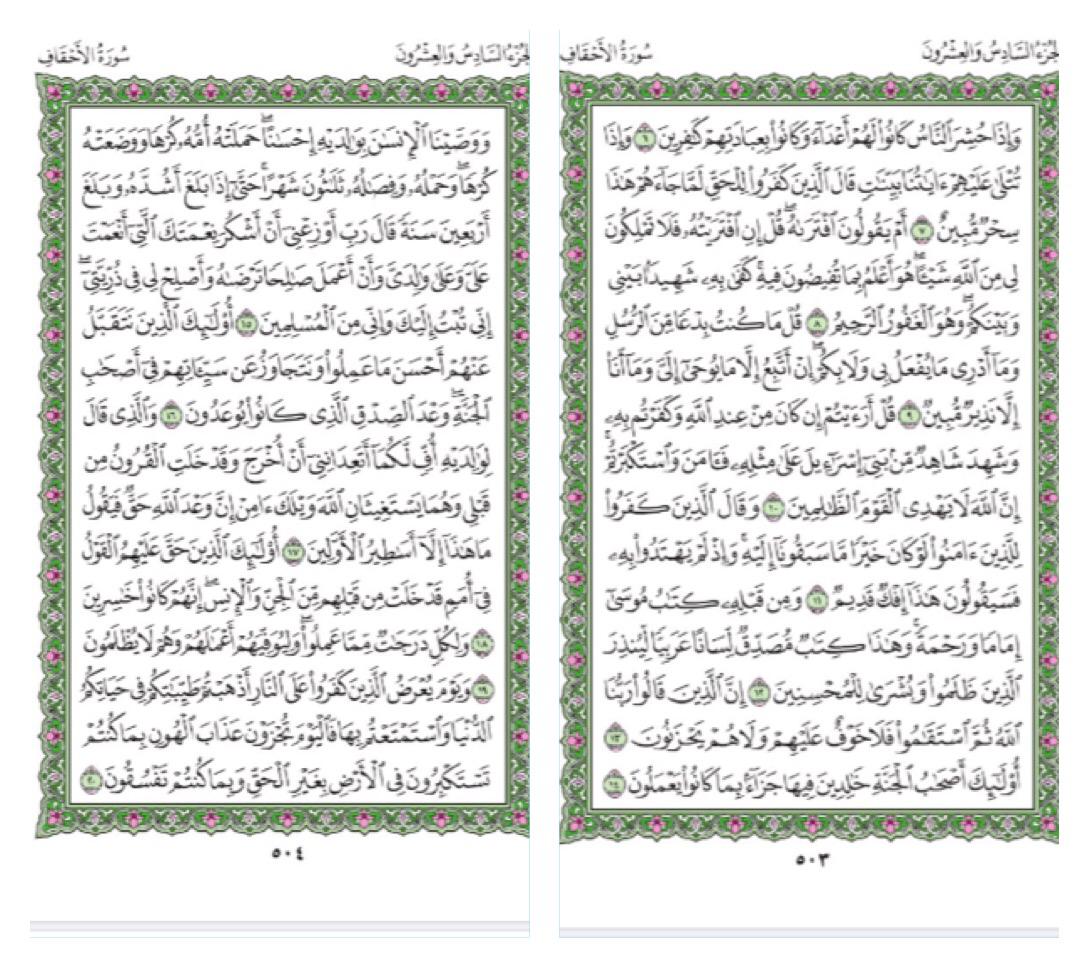 الجُزْءُ السَّادِسُ وَالعِشْرُونَ
سُورَةُ الأَحْقَافِ
وَإِذَا حُشِرَ ٱلنَّاسُ كَانُوا۟ لَهُمْ أَعْدَآءً وَكَانُوا۟ بِعِبَادَتِهِمْ كَٰفِرِينَ ٦ وَإِذَا
تُتْلَىٰ عَلَيْهِمْ ءَايَٰتُنَا بَيِّنَٰتٍ قَالَ ٱلَّذِينَ كَفَرُوا۟ لِلْحَقِّ لَمَّا جَآءَهُمْ هَٰذَا
سِحْرٌ مُّبِينٌ ٧ أَمْ يَقُولُونَ ٱفْتَرَىٰهُ ۖ قُلْ إِنِ ٱفْتَرَيْتُهُۥ فَلَا تَمْلِكُونَ
لِى مِنَ ٱللَّهِ شَيْـًٔا ۖ هُوَ أَعْلَمُ بِمَا تُفِيضُونَ فِيهِ ۖ كَفَىٰ بِهِۦ شَهِيدًۢا بَيْنِى
وَبَيْنَكُمْ ۖ وَهُوَ ٱلْغَفُورُ ٱلرَّحِيمُ ٨ قُلْ مَا كُنتُ بِدْعًا مِّنَ ٱلرُّسُلِ
وَمَآ أَدْرِى مَا يُفْعَلُ بِى وَلَا بِكُمْ ۖ إِنْ أَتَّبِعُ إِلَّا مَا يُوحَىٰٓ إِلَىَّ وَمَآ أَنَا۠
إِلَّا نَذِيرٌ مُّبِينٌ ٩ قُلْ أَرَءَيْتُمْ إِن كَانَ مِنْ عِندِ ٱللَّهِ وَكَفَرْتُم بِهِۦ
وَشَهِدَ شَاهِدٌ مِّنۢ بَنِىٓ إِسْرَٰٓءِيلَ عَلَىٰ مِثْلِهِۦ فَـَٔامَنَ وَٱسْتَكْبَرْتُمْ ۖ
إِنَّ ٱللَّهَ لَا يَهْدِى ٱلْقَوْمَ ٱلظَّٰلِمِينَ ١٠ وَقَالَ ٱلَّذِينَ كَفَرُوا۟
لِلَّذِينَ ءَامَنُوا۟ لَوْ كَانَ خَيْرًا مَّا سَبَقُونَآ إِلَيْهِ ۚ وَإِذْ لَمْ يَهْتَدُوا۟ بِهِۦ
فَسَيَقُولُونَ هَٰذَآ إِفْكٌ قَدِيمٌ ١١ وَمِن قَبْلِهِۦ كِتَٰبُ مُوسَىٰٓ
إِمَامًا وَرَحْمَةً ۚ وَهَٰذَا كِتَٰبٌ مُّصَدِّقٌ لِّسَانًا عَرَبِيًّا لِّيُنذِرَ
ٱلَّذِينَ ظَلَمُوا۟ وَبُشْرَىٰ لِلْمُحْسِنِينَ ١٢ إِنَّ ٱلَّذِينَ قَالُوا۟ رَبُّنَا
ٱللَّهُ ثُمَّ ٱسْتَقَٰمُوا۟ فَلَا خَوْفٌ عَلَيْهِمْ وَلَا هُمْ يَحْزَنُونَ ١٣
أُو۟لَٰٓئِكَ أَصْحَٰبُ ٱلْجَنَّةِ خَٰلِدِينَ فِيهَا جَزَآءًۢ بِمَا كَانُوا۟ يَعْمَلُونَ ١٤
٥٠٣
الجُزْءُ السَّادِسُ وَالعِشْرُونَ
سُورَةُ الأَحْقَافِ
وَوَصَّيْنَا ٱلْإِنسَٰنَ بِوَٰلِدَيْهِ إِحْسَٰنًا ۖ حَمَلَتْهُ أُمُّهُۥ كُرْهًا وَوَضَعَتْهُ
كُرْهًا ۖ وَحَمْلُهُۥ وَفِصَٰلُهُۥ ثَلَٰثُونَ شَهْرًا ۚ حَتَّىٰٓ إِذَا بَلَغَ أَشُدَّهُۥ وَبَلَغَ
أَرْبَعِينَ سَنَةً قَالَ رَبِّ أَوْزِعْنِىٓ أَنْ أَشْكُرَ نِعْمَتَكَ ٱلَّتِىٓ أَنْعَمْتَ
عَلَىَّ وَعَلَىٰ وَٰلِدَىَّ وَأَنْ أَعْمَلَ صَٰلِحًا تَرْضَىٰهُ وَأَصْلِحْ لِى فِى ذُرِّيَّتِىٓ ۖ
إِنِّى تُبْتُ إِلَيْكَ وَإِنِّى مِنَ ٱلْمُسْلِمِينَ ١٥ أُو۟لَٰٓئِكَ ٱلَّذِينَ نَتَقَبَّلُ
عَنْهُمْ أَحْسَنَ مَا عَمِلُوا۟ وَنَتَجَاوَزُ عَن سَيِّـَٔاتِهِمْ فِىٓ أَصْحَٰبِ
ٱلْجَنَّةِ ۖ وَعْدَ ٱلصِّدْقِ ٱلَّذِى كَانُوا۟ يُوعَدُونَ ١٦ وَٱلَّذِى قَالَ
لِوَٰلِدَيْهِ أُفٍّ لَّكُمَآ أَتَعِدَانِنِىٓ أَنْ أُخْرَجَ وَقَدْ خَلَتِ ٱلْقُرُونُ مِن
قَبْلِى وَهُمَا يَسْتَغِيثَانِ ٱللَّهَ وَيْلَكَ ءَامِنْ إِنَّ وَعْدَ ٱللَّهِ حَقٌّ فَيَقُولُ
مَا هَٰذَآ إِلَّآ أَسَٰطِيرُ ٱلْأَوَّلِينَ ١٧ أُو۟لَٰٓئِكَ ٱلَّذِينَ حَقَّ عَلَيْهِمُ ٱلْقَوْلُ
فِىٓ أُمَمٍ قَدْ خَلَتْ مِن قَبْلِهِم مِّنَ ٱلْجِنِّ وَٱلْإِنسِ ۖ إِنَّهُمْ كَانُوا۟ خَٰسِرِينَ
١٨ وَلِكُلٍّ دَرَجَٰتٌ مِّمَّا عَمِلُوا۟ ۖ وَلِيُوَفِّيَهُمْ أَعْمَٰلَهُمْ وَهُمْ لَا يُظْلَمُونَ
١٩ وَيَوْمَ يُعْرَضُ ٱلَّذِينَ كَفَرُوا۟ عَلَى ٱلنَّارِ أَذْهَبْتُمْ طَيِّبَٰتِكُمْ فِى حَيَاتِكُمُ
ٱلدُّنْيَا وَٱسْتَمْتَعْتُم بِهَا فَٱلْيَوْمَ تُجْزَوْنَ عَذَابَ ٱلْهُونِ بِمَا كُنتُمْ
تَسْتَكْبِرُونَ فِى ٱلْأَرْضِ بِغَيْرِ ٱلْحَقِّ وَبِمَا كُنتُمْ تَفْسُقُونَ ٢٠
٥٠٤